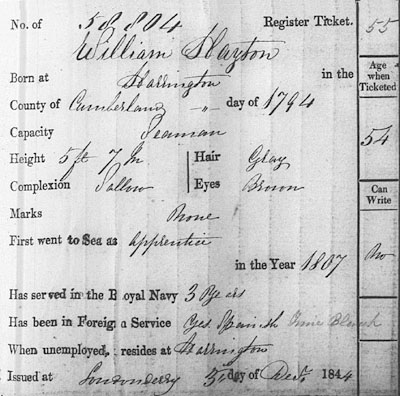 No. of 58804 Register Ticket. 55
William Hayton
Born at Harrington in the
Age when Ticketed
County of Cumberland " day of 1794
Capacity Seaman 54
Height 5 ft 7 In Hair Gray
Complexion Sallow Eyes Brown
Can Write
Marks None
First went to Sea as Apprentice
in the Year 1807 No
Has served in the Royal Navy 3 Years
Has been in Foreign Service Yes Spanish
When unemployed, resides at Harrington
Issued at Londonderry 5 day of Decr. 1844